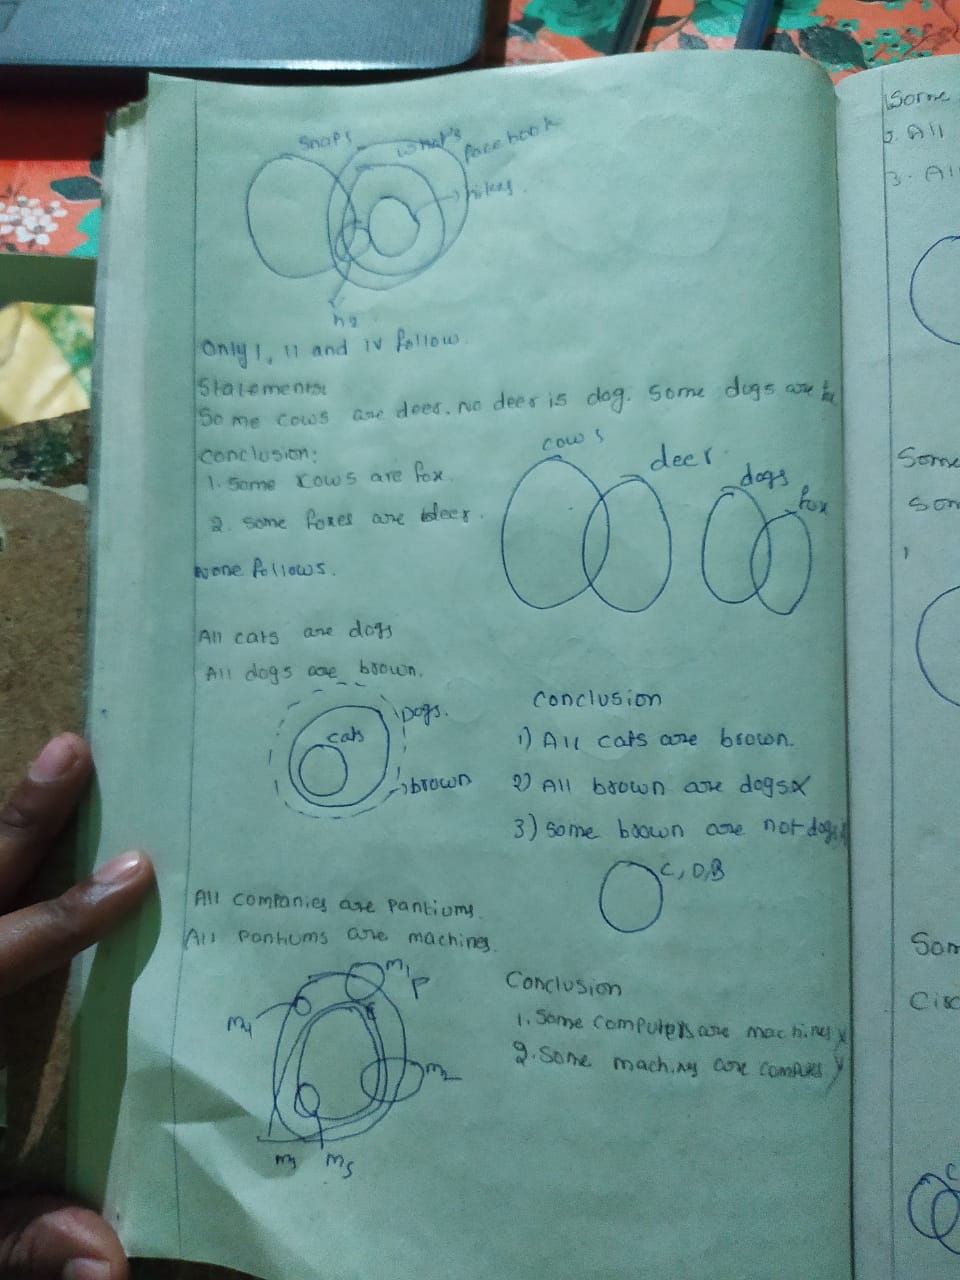 Snaps
what's
face book
hikes
h2
Only I, II and IV follow.
Statements:
Some cows are deer. No deer is dog. Some dogs are
conclusion:
1. Some cows are fox.
2. Some foxes are deer.
None follows.
cows
deer
dogs
fox
All cats are dogs
All dogs are brown.
Dogs.
cats
brown
Conclusion
1) All cats are brown.
2) All brown are dogs x
3) Some brown are not dogs
C, D, B
All companies are pantiums
All pantiums are machines.
m1
P
m4
m2
m3
m5
Conclusion
1. Some computers are machines
2. Some machines are computers
Some
2. All
3. All
Some
Som
Som